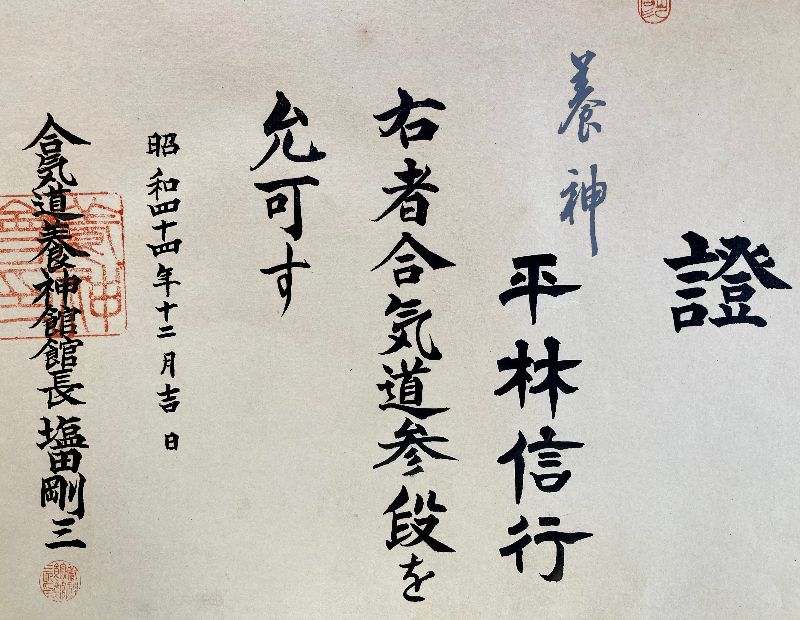 證
養神
平林信行
右者合気道参段を
允可す
昭和四十四年十二月吉日
合気道養神館館長塩田剛三